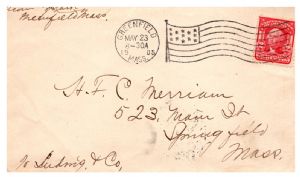 Greenfield Mass.
GREENFIELD
MAY 23
8-30A
MASS.
H. F. C. Merriam
523, Main St
Springfield
Mass.
% Ludwig & Co,